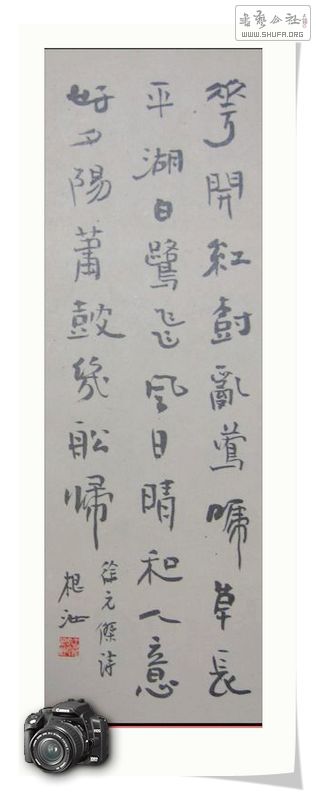 書藝公社
WWW.SHUFA.ORG
華開紅樹亂鶯啼草長
平湖白鷺飛風日晴和人意
好夕陽蕭鼓幾舩歸
徐元傑詩
Canon